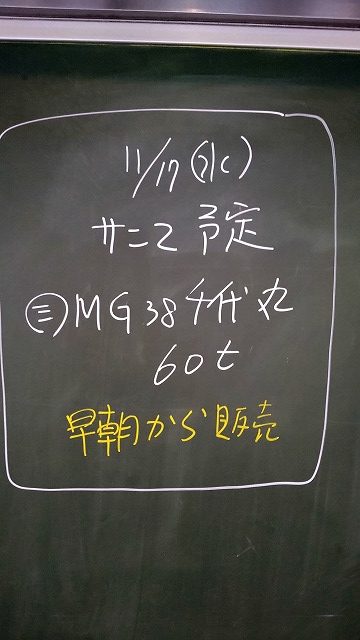 11/17(水)
サンマ予定
㊂MG38千代丸
60t
早朝から販売